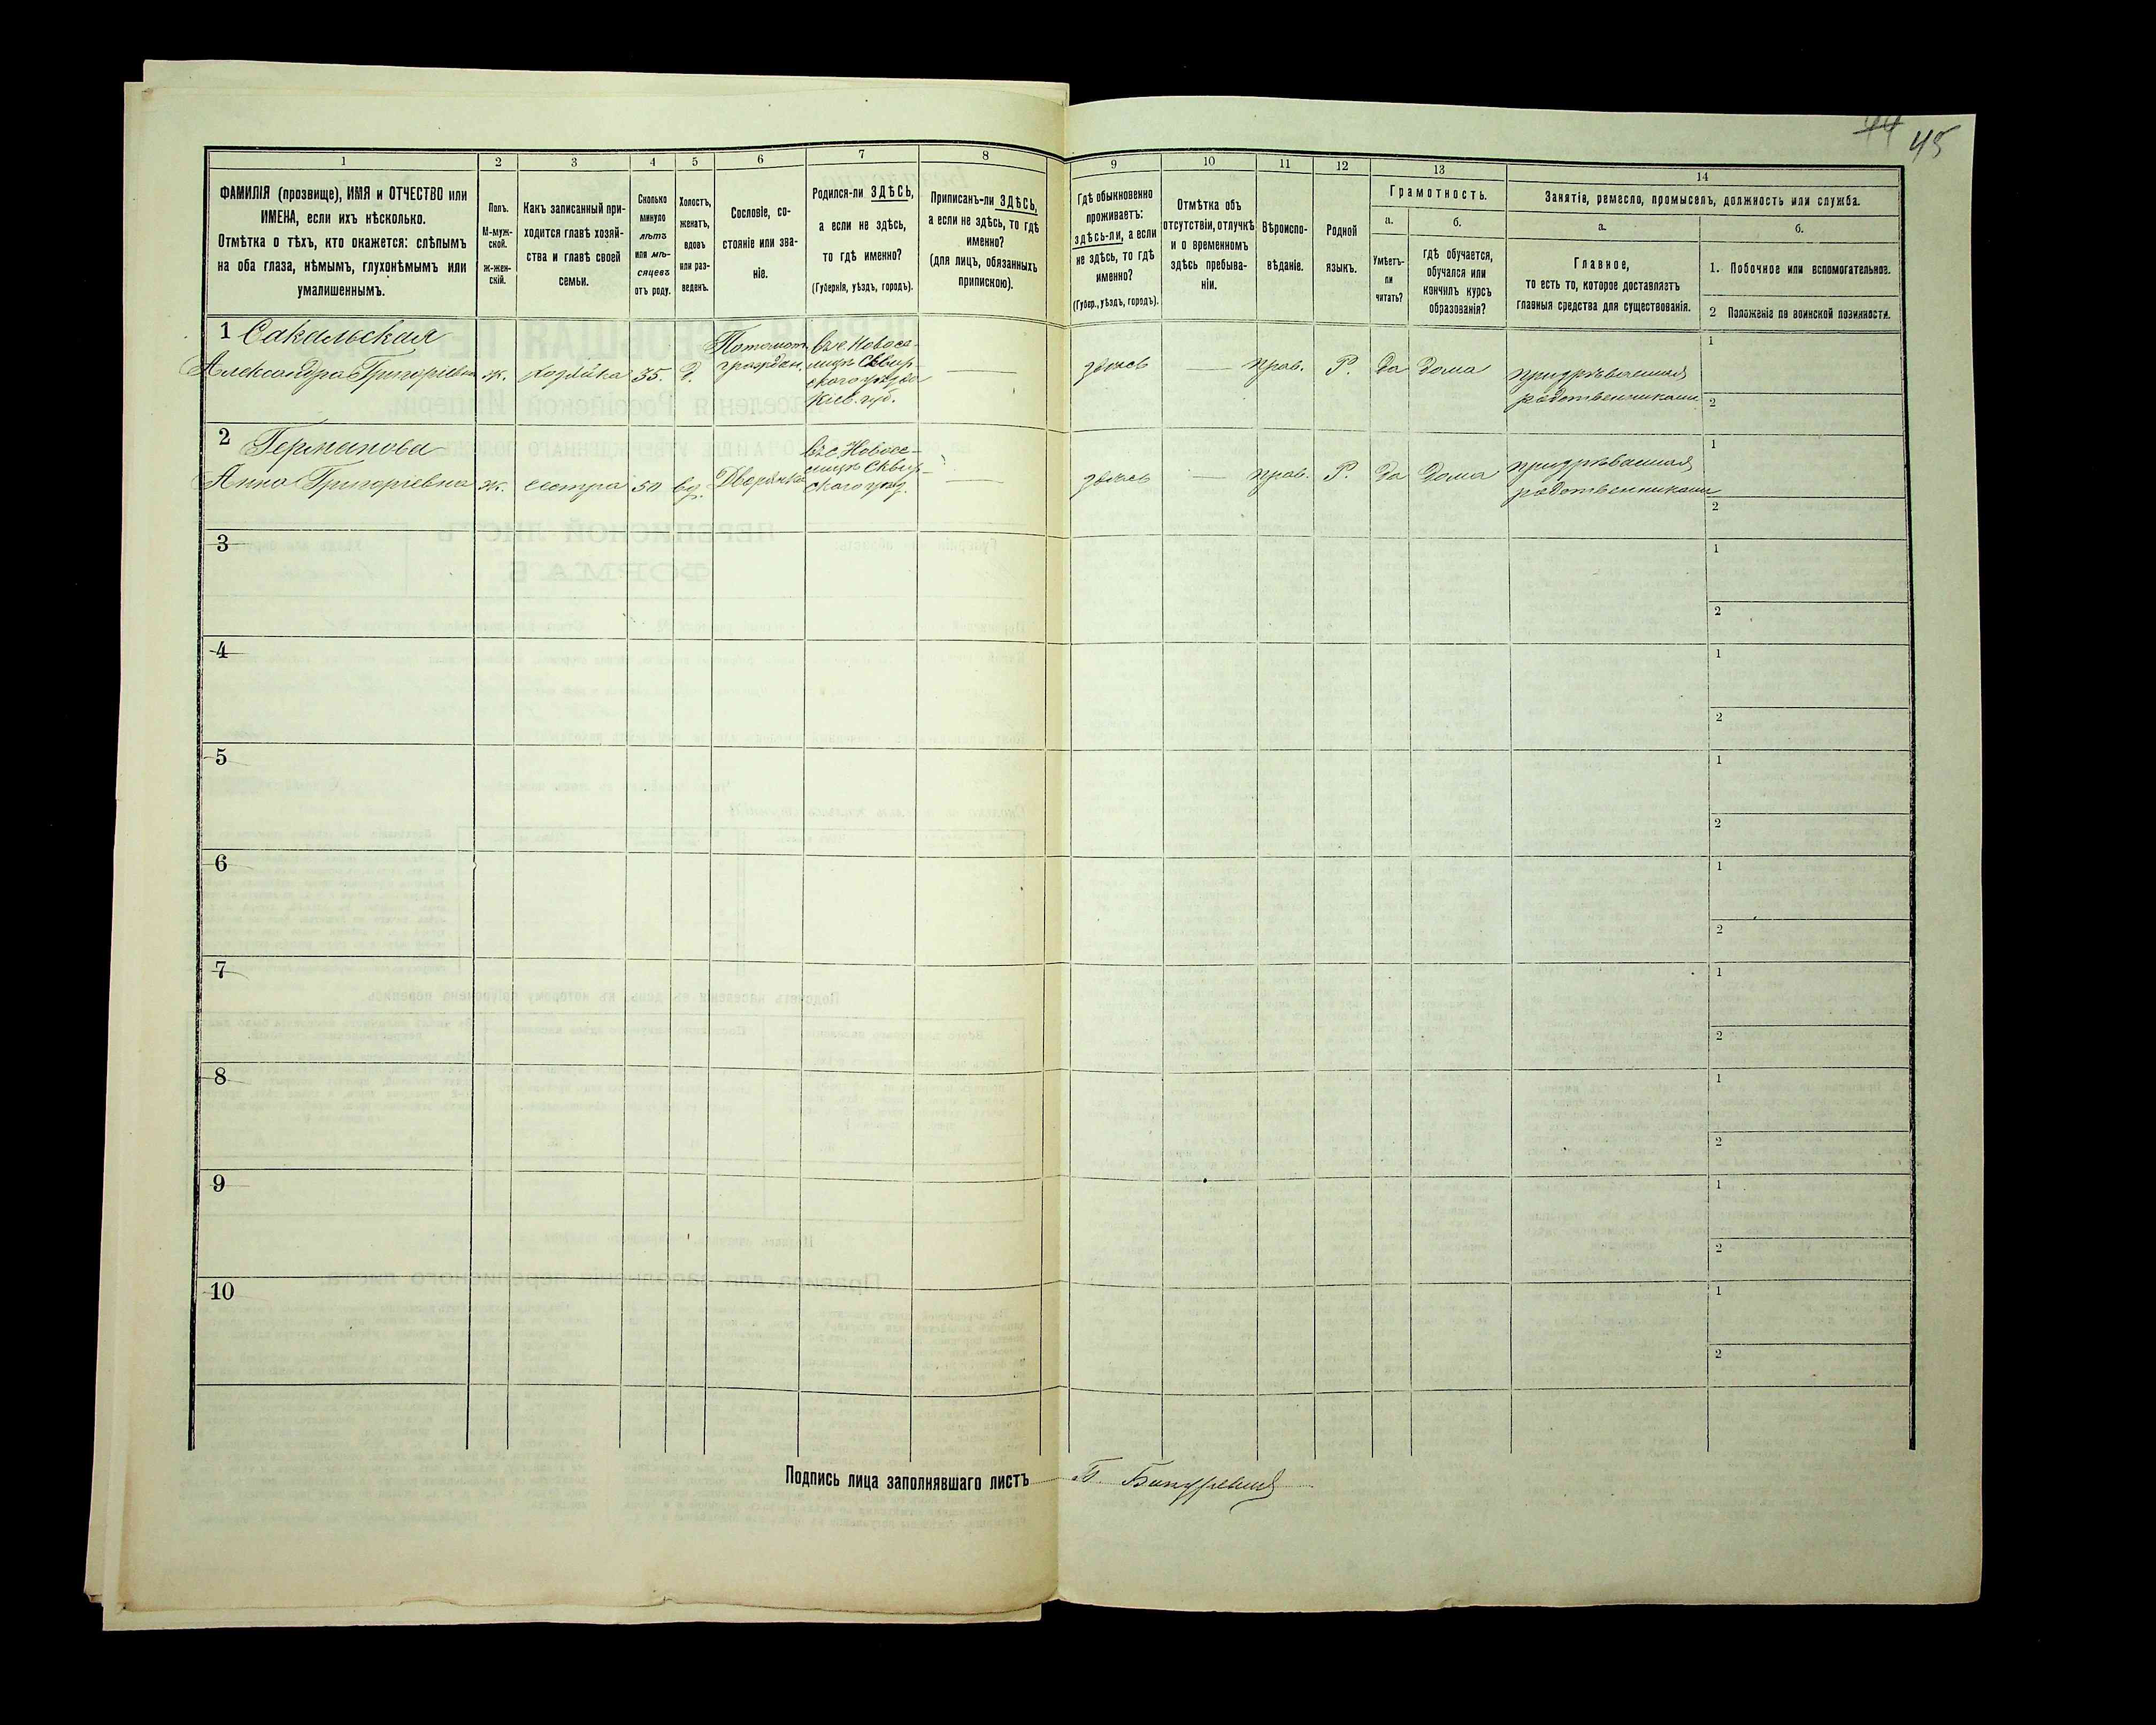 44 45
1 2 3 4 5 6 7 8 9 10 11 12 13 14
ФАМИЛІЯ (прозвище), ИМЯ и ОТЧЕСТВО или
ИМЕНА, если ихъ нѣсколько.
Отмѣтка о тѣхъ, кто окажется: слѣпымъ
на оба глаза, нѣмымъ, глухонѣмымъ или
умалишеннымъ.
Полъ.
М-муж-
ской.
ж-жен-
скій.
Какъ записанный при-
ходится главѣ хозяй-
ства и главѣ своей
семьи.
Сколько
минуло
лѣтъ
или мѣ-
сяцевъ
отъ роду.
Холостъ,
женатъ,
вдовъ
или раз-
веденъ.
Сословіе, со-
стояніе или зва-
ніе.
Родился-ли ЗДѢСЬ,
а если не здѣсь,
то гдѣ именно?
(Губернія, уѣздъ, городъ).
Приписанъ-ли ЗДѢСЬ,
а если не здѣсь, то гдѣ
именно?
(для лицъ, обязанныхъ
припискою).
Гдѣ обыкновенно
проживаетъ:
здѣсь-ли, а если
не здѣсь, то гдѣ
именно?
(Губер., уѣздъ, городъ).
Отмѣтка объ
отсутствіи, отлучкѣ
и о временномъ
здѣсь пребыва-
ніи.
Вѣроиспо-
вѣданіе.
Родной
языкъ.
Грамотность.
а.
Умѣетъ-
ли
читать?
б.
гдѣ обучается,
обучался или
кончилъ курсъ
образованія?
Занятіе, ремесло, промыселъ, должность или служба.
а.
Главное,
то есть то, которое доставляетъ
главныя средства для существованія.
б.
1. Побочное или вспомогательное.
2 Положеніе по воинской повинности.
1 Сакальская
Александра Григоріевна
ж.
хозяйка
35.
д.
Потомст.
граждан.
въ с. Новосе-
лицѣ Сквир-
скаго уѣзда
Кіев. губ.
—
здѣсь
—
прав.
Р.
Да
Дома
придѣваемая
родственниками
1
2
2 Германова
Анна Григоріевна
ж.
сестра
50
вд.
Дворянка
въ с. Новосе-
лицѣ Сквир-
скаго уѣзд.
—
здѣсь
—
прав.
Р.
Да
Дома
придѣваемая
родственниками
1
2
3
1
2
4
1
2
5
1
2
6
1
2
7
1
2
8
1
2
9
1
2
10
1
2
Подпись лица заполнявшаго листъ